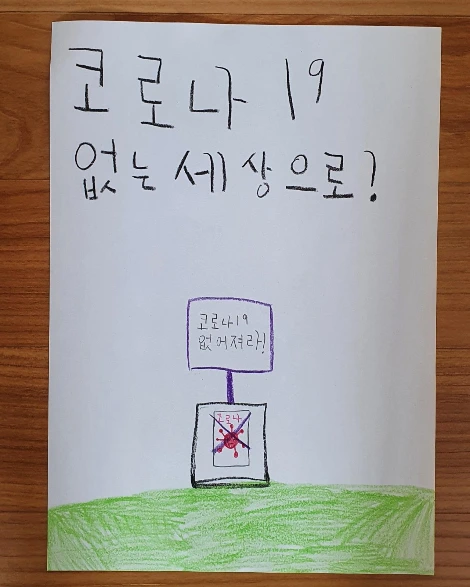 코로나 19
없는 세상으로!
코로나19
없어져라!
코로나